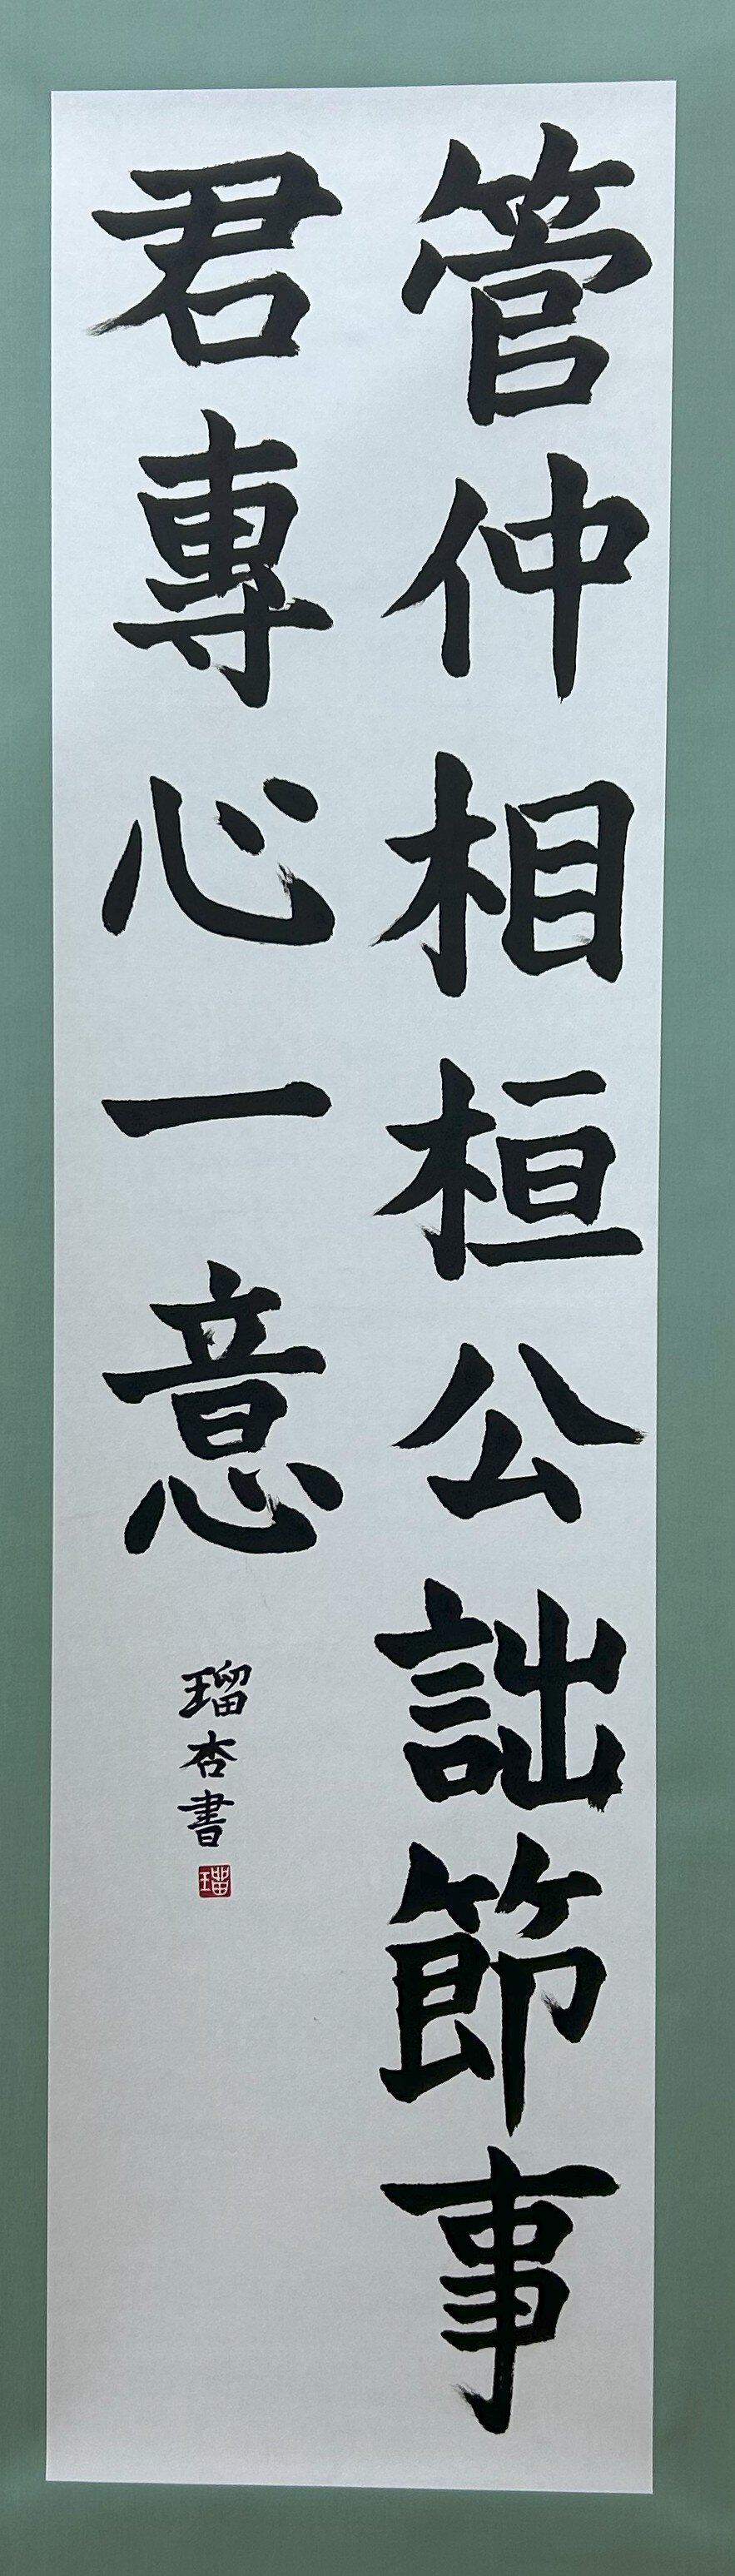 管仲相桓公詘節事
君專心一意
瑠杏書
瑠